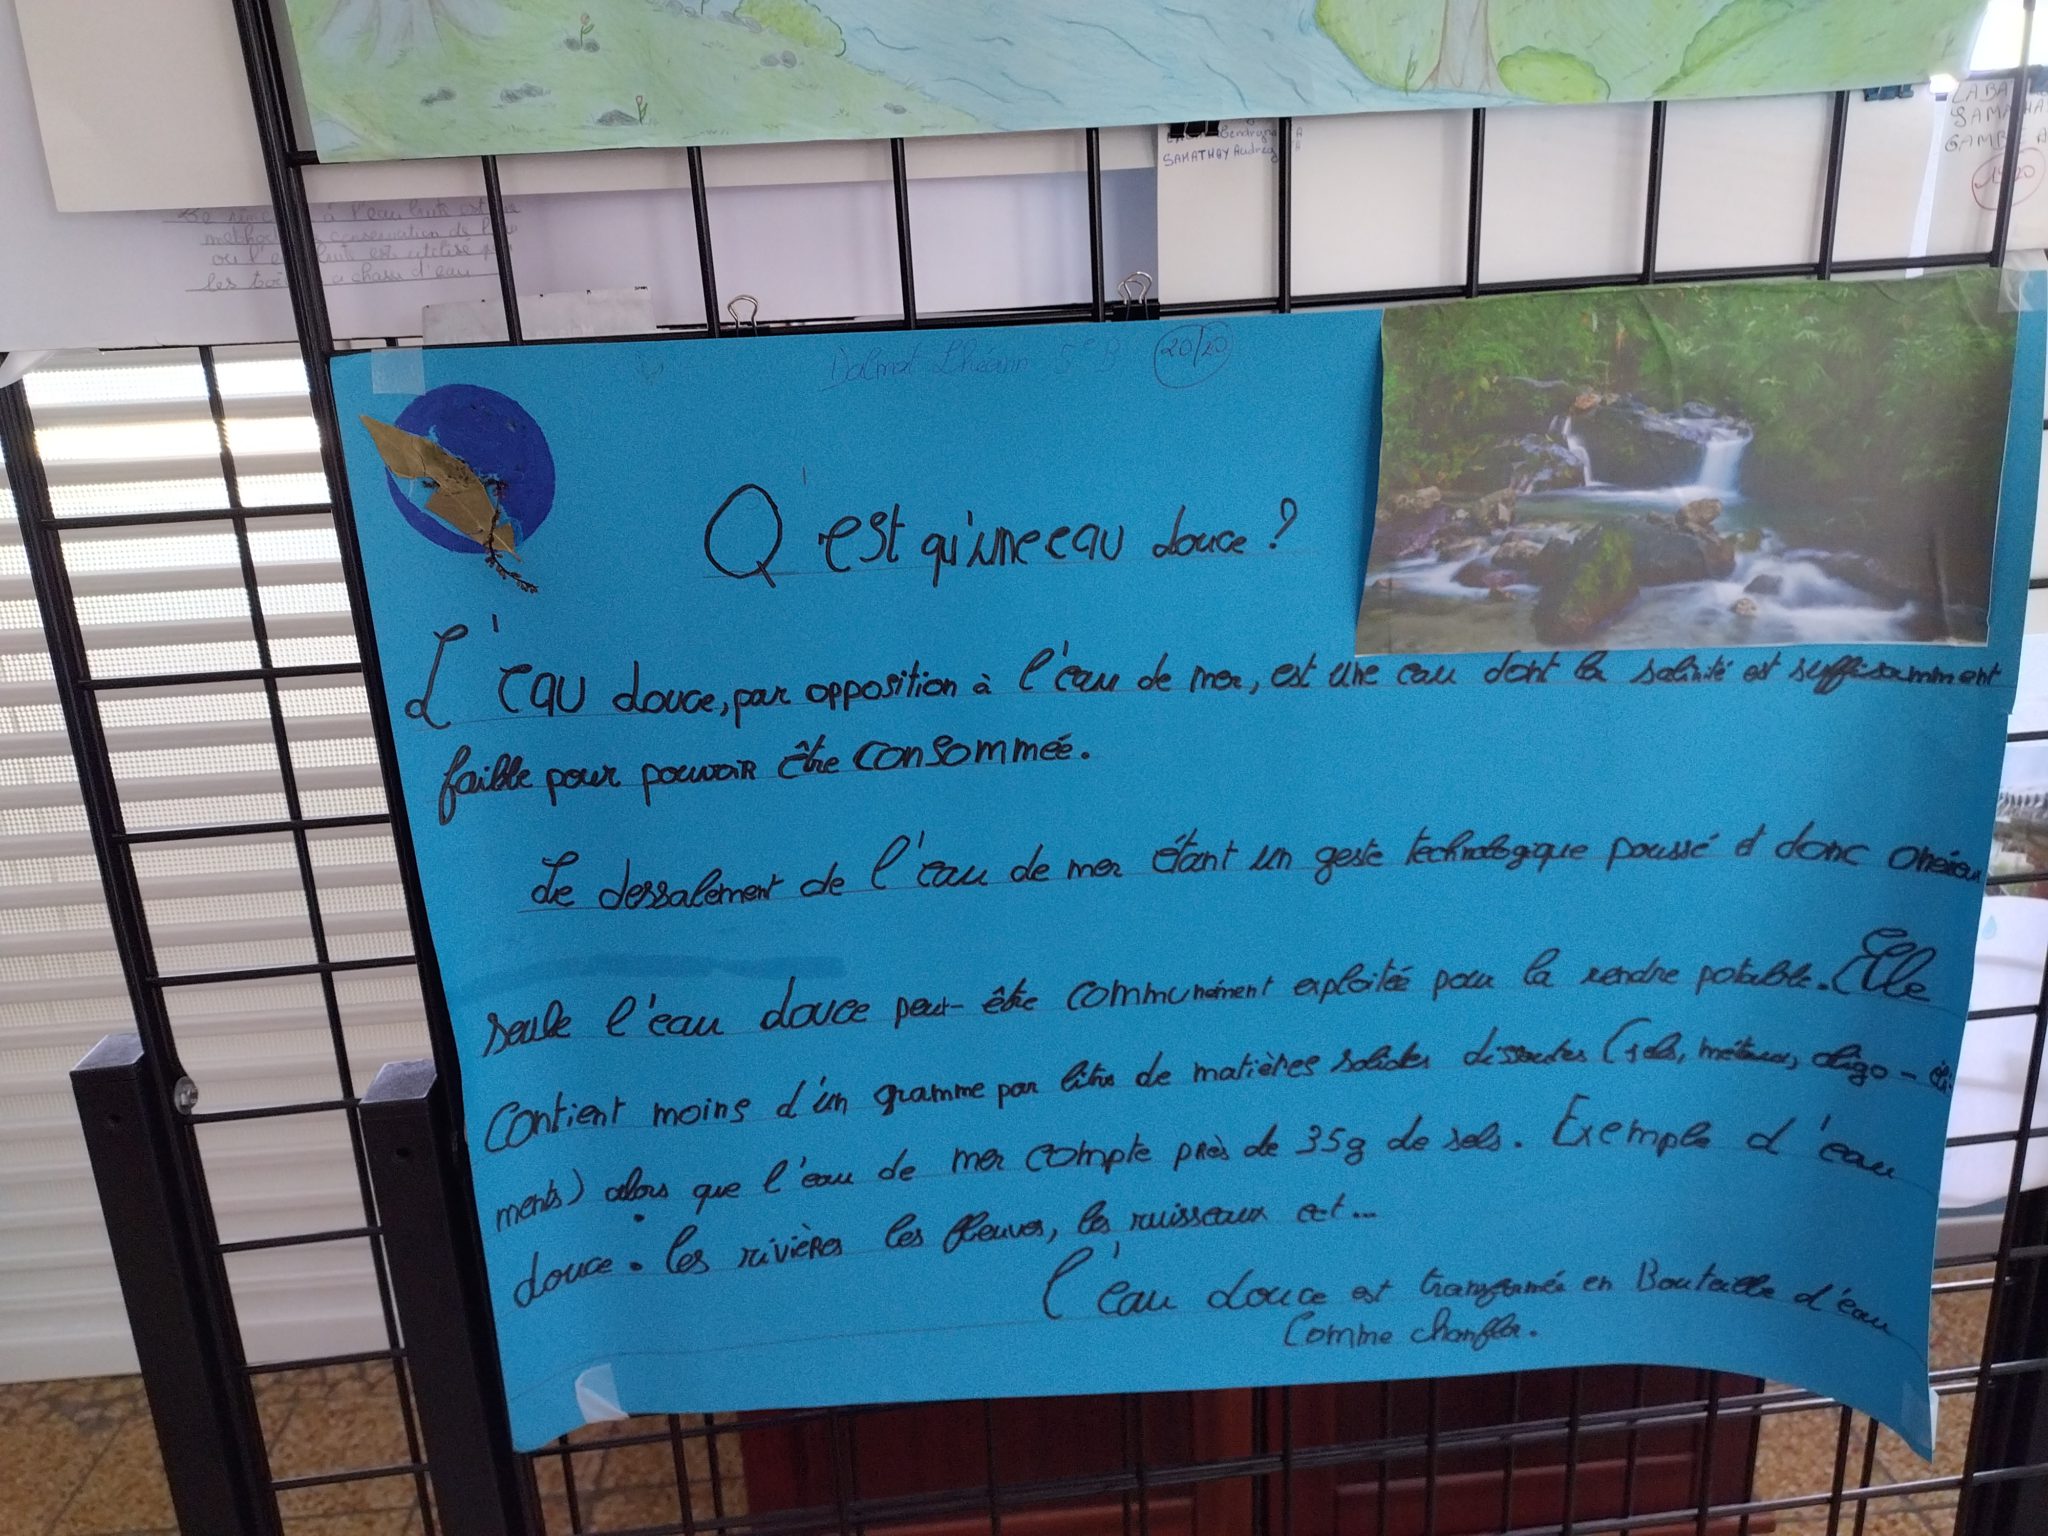 SAMATHAY Audrey A
LABA
SAMATHA
GAMBE A
à l'eau brute est
conservation de l'
est utilisé
les chasse d'eau
5e B 20/20
Q'est qu'une eau douce ?
L'eau douce, par opposition à l'eau de mer, est une eau dont la salinité est suffisamment
faible pour pouvoir être consommée.
Le dessalement de l'eau de mer étant un geste technologique poussé et donc onéreux
seule l'eau douce peut-être communément exploitée pour la rendre potable. Elle
contient moins d'un gramme par litre de matières solides dissoutes (sels, métaux, oligo-élé
ments) alors que l'eau de mer compte près de 35g de sels. Exemple d'eau
douce : les rivières les fleuves, les ruisseaux ect...
l'eau douce est transformée en Bouteille d'eau
comme chanflor.